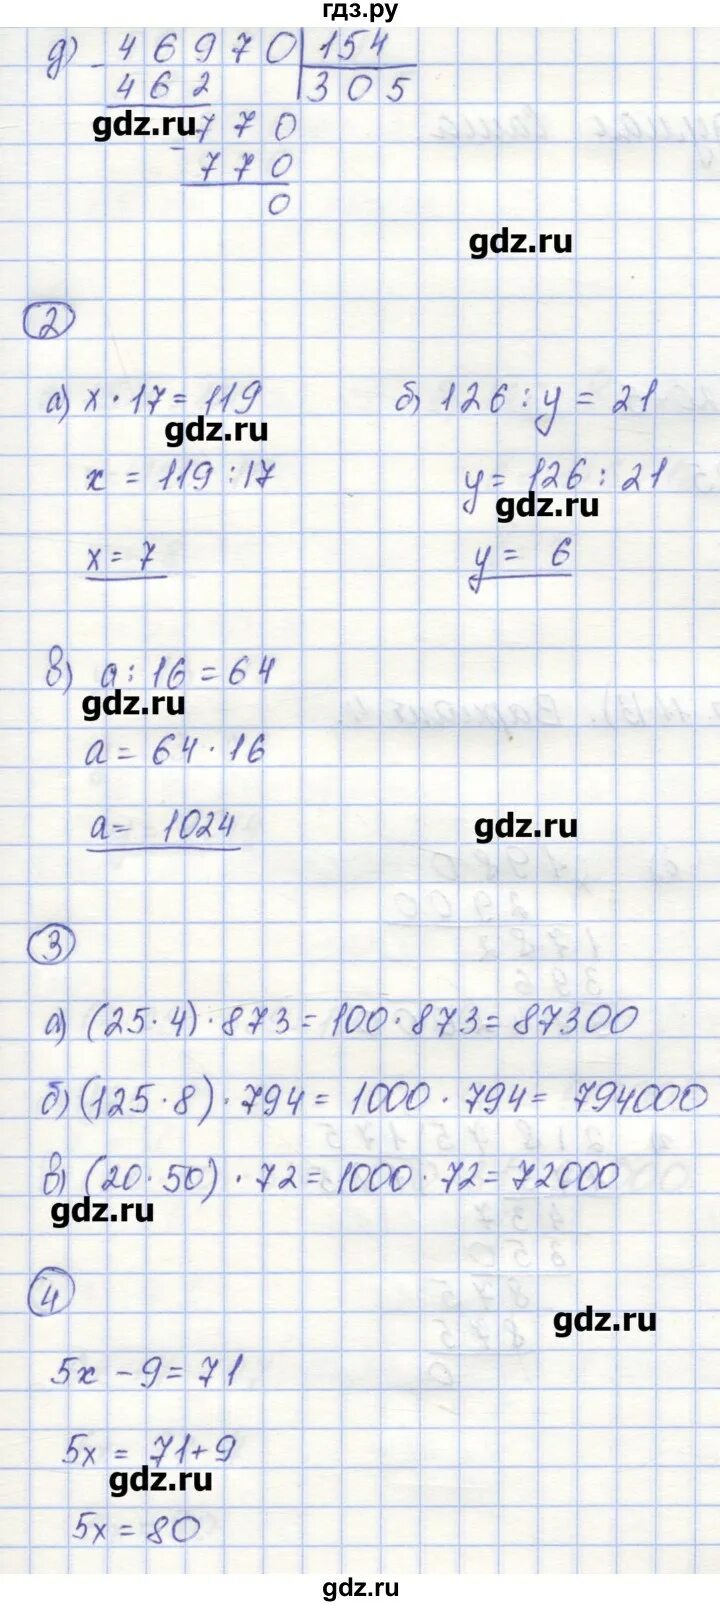 гдз.ру
д) 46970 | 154
462 | 305
gdz.ru 770
770
0
gdz.ru
2
а) x · 17 = 119 б) 126 : y = 21
gdz.ru
x = 119 : 17 y = 126 : 21
gdz.ru
x = 7 y = 6
в) a : 16 = 64
gdz.ru
a = 64 · 16
a = 1024
gdz.ru
3
а) (25 · 4) · 873 = 100 · 873 = 87300
б) (125 · 8) · 794 = 1000 · 794 = 794000
в) (20 · 50) · 72 = 1000 · 72 = 72000
gdz.ru
4
gdz.ru
5x - 9 = 71
5x = 71 + 9
gdz.ru
5x = 80
gdz.ru